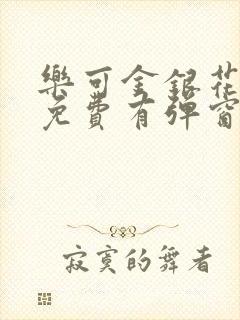 樂可金銀花
免費有彈窗
寂寞的舞者